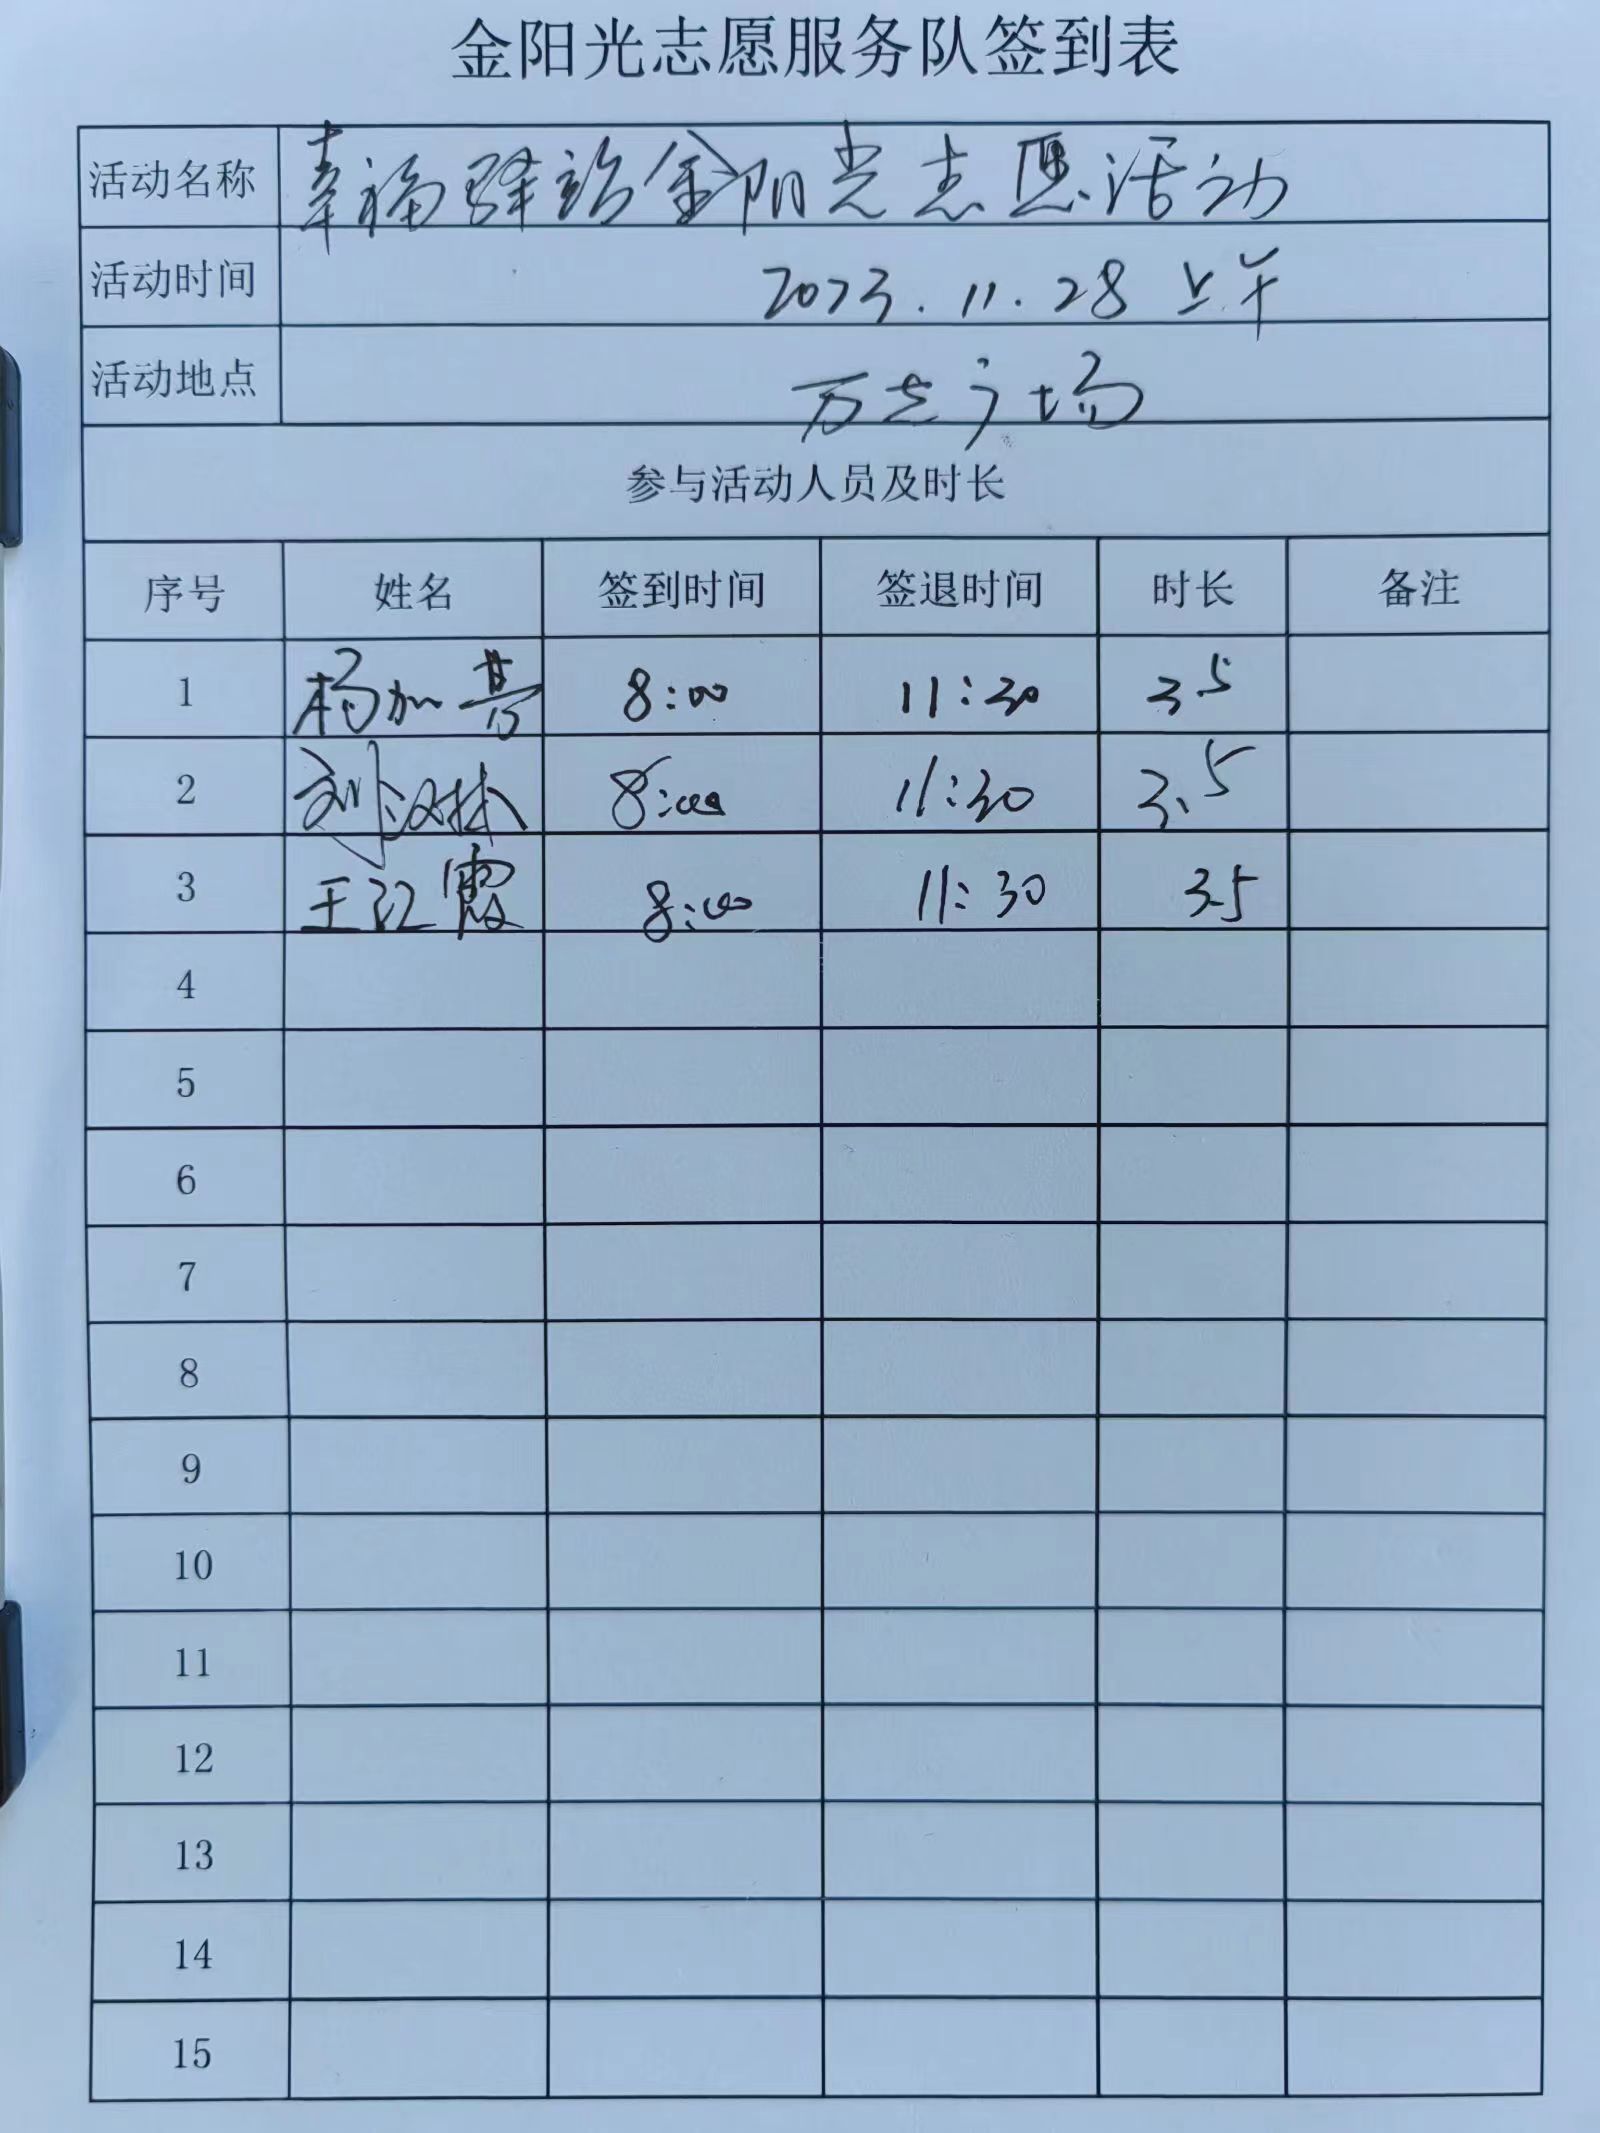 金阳光志愿服务队签到表
活动名称 幸福驿站金阳光志愿活动
活动时间 2023.11.28 上午
活动地点 万达广场
参与活动人员及时长
序号 姓名 签到时间 签退时间 时长 备注
1 杨加 8:00 11:30 3.5
2 刘汉林 8:00 11:30 3.5
3 王江霞 8:00 11:30 3.5
4
5
6
7
8
9
10
11
12
13
14
15